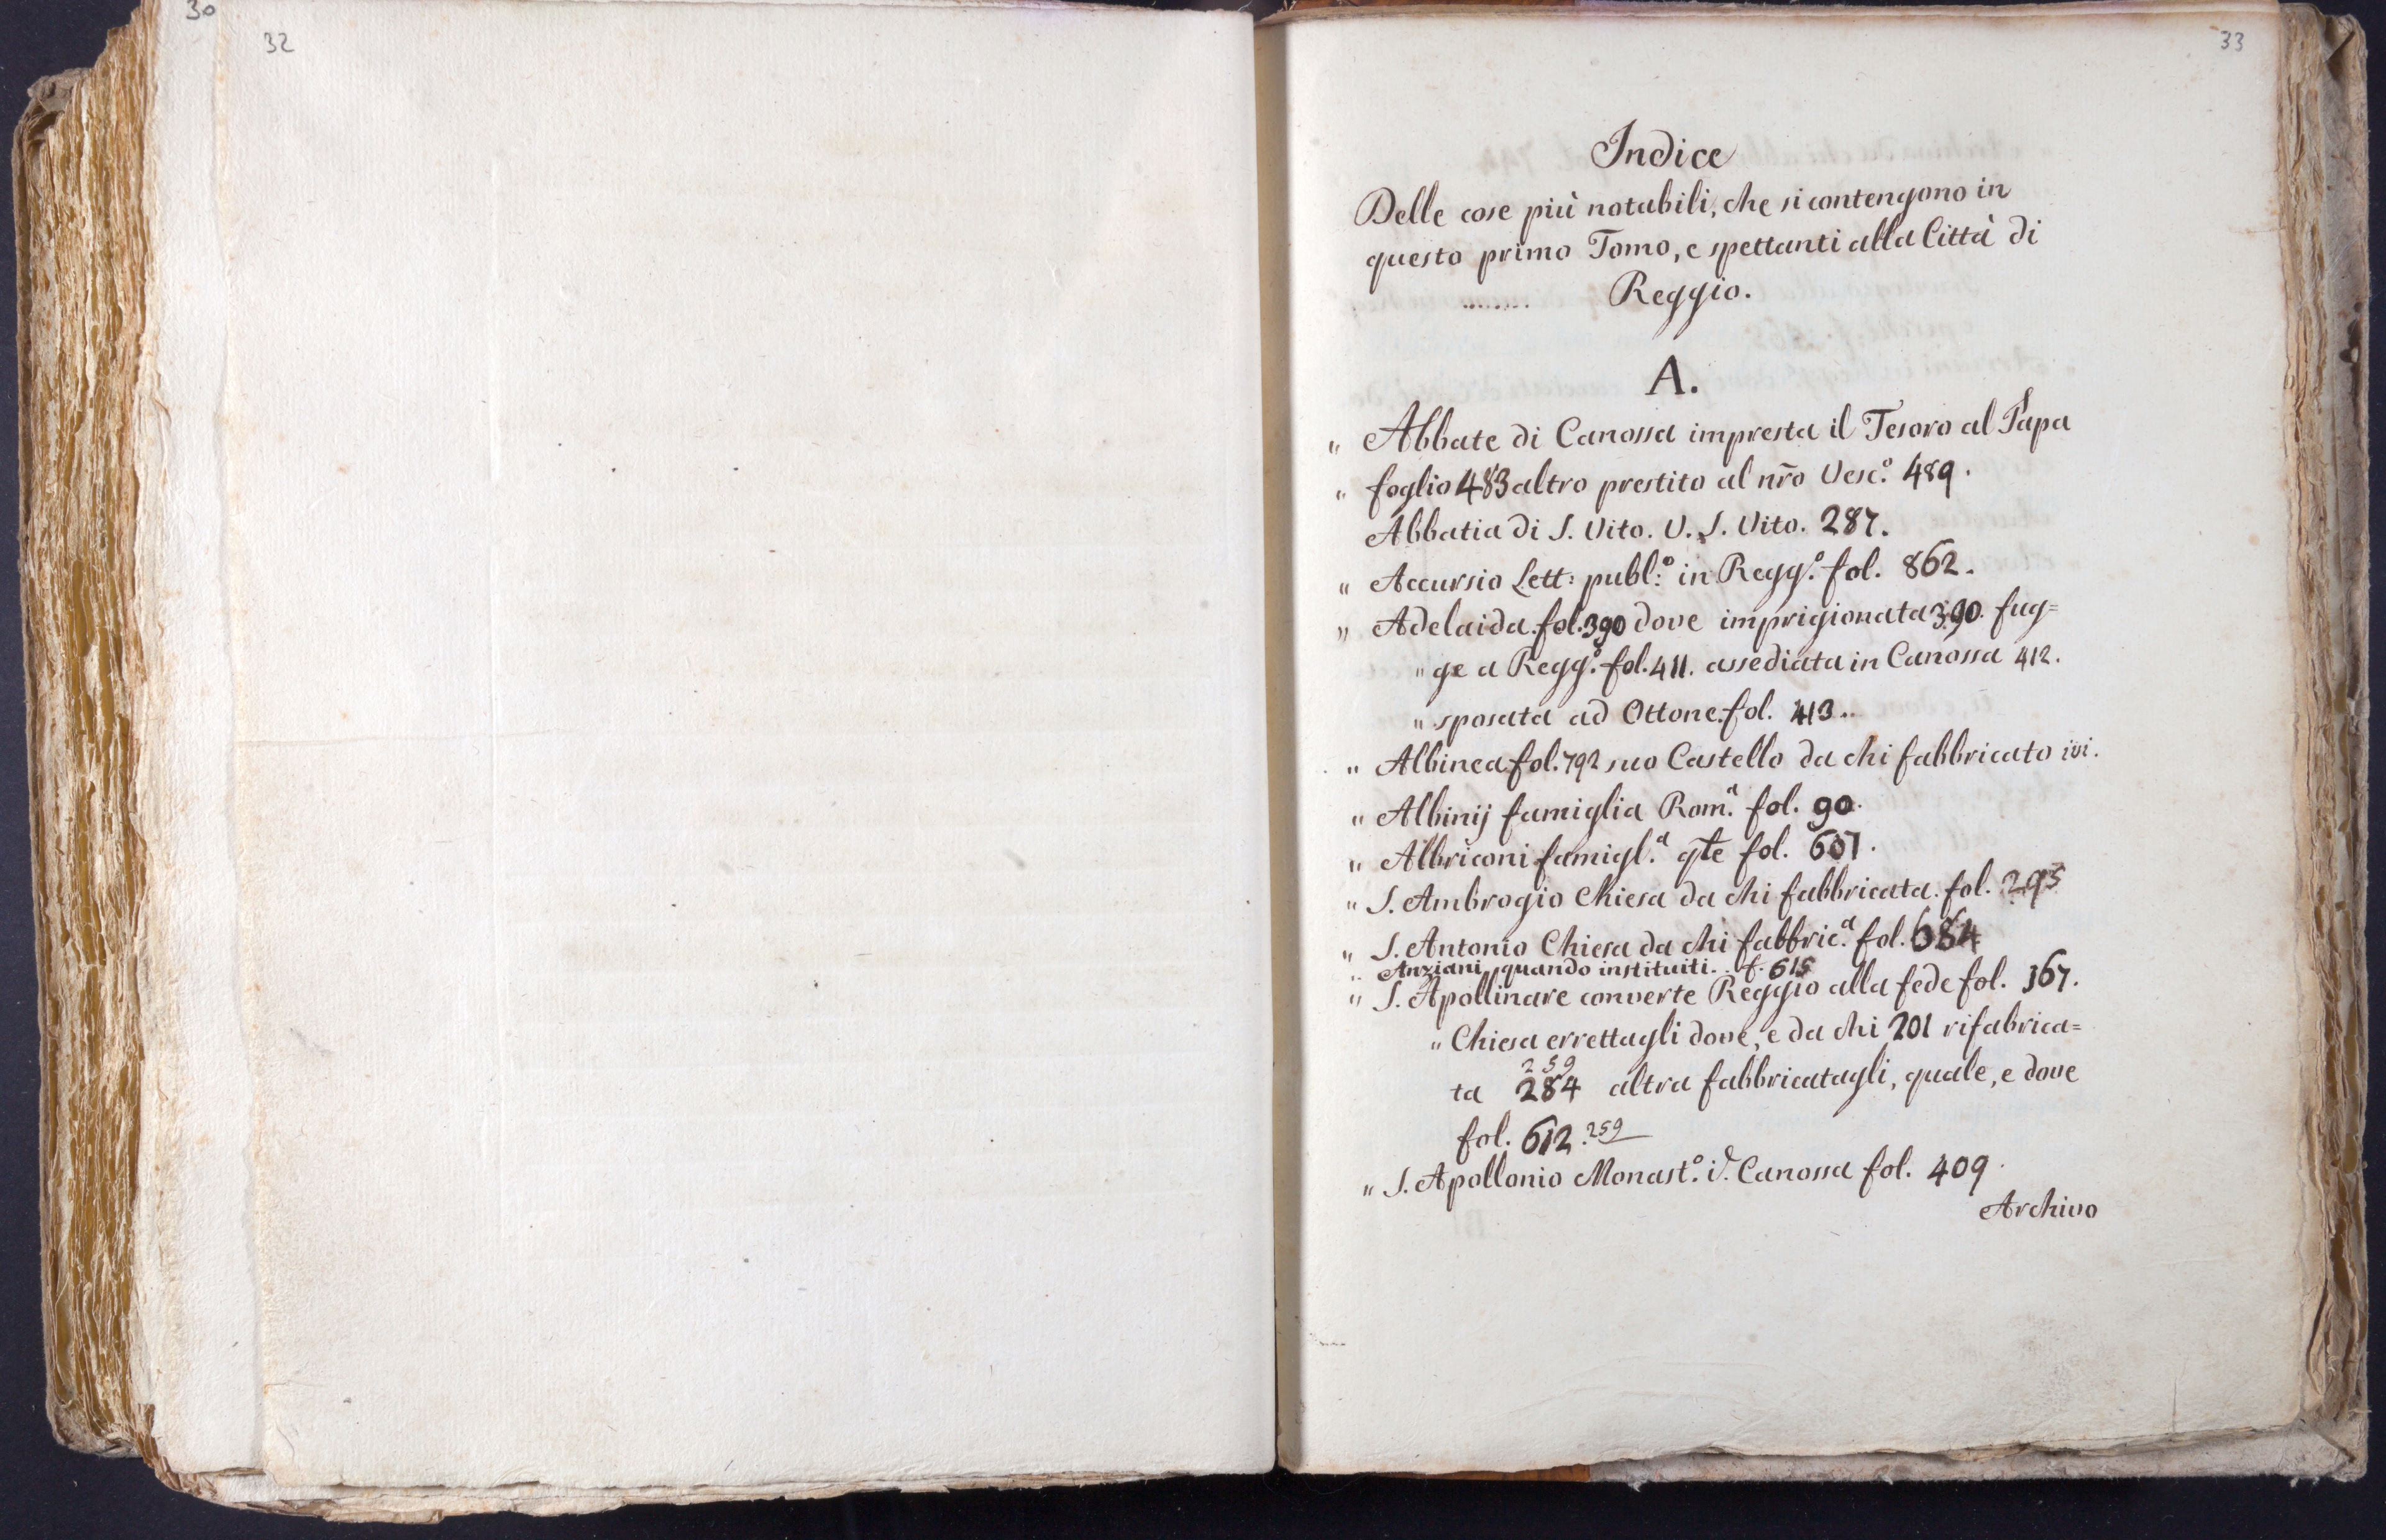 30
32
33
Indice
Delle cose più notabili, che si contengono in
questo primo Tomo, e spettanti alla Città di
........ Reggio.
A.
" Abbate di Canossa impresta il Tesoro al Papa
" foglio 483 altro prestito al nr̃o Vesc.º 489.
Abbatia di S. Vito. V. S. Vito. 287.
" Accursio Lett: publ:º in Regg.º fol. 862.
" Adelaida. fol. 390 dove imprigionata 390. fug=
" ge a Regg.º fol. 411. assediata in Canossa 412.
" sposata ad Ottone. fol. 413..
" Albinea fol. 792 suo Castello da chi fabbricato ivi.
" Albinij famiglia Rom.ª fol. 90.
" Albriconi famigl.ª qte fol. 607.
" S. Ambrogio Chiesa da chi fabbricata. fol. 295
" S. Antonio Chiesa da chi fabbric.ª fol. 684
" Anziani quando instituiti. . f. 615
" S. Apollinare converte Reggio alla fede fol. 167.
" Chiesa errettagli dove, e da chi 201 rifabrica=
259
ta 284 altra fabbricatagli, quale, e dove
fol. 612. 259
" S. Apollonio Monast.º di Canossa fol. 409.
Archivo